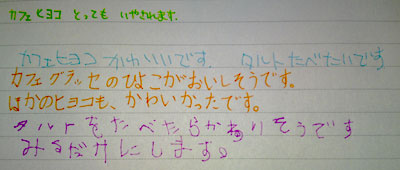 カフェヒヨコ とっても いやされます。
カフェヒヨコ かわいいです。 タルトたべたいです
カフェグラッセのひよこがおいしそうです。
ほかのヒヨコも、かわいかったです。
タルトをたべたらかわりそうです
みるだけにします。